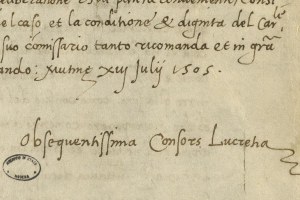 el caso et la conditione & dignita del Car.le
suo comissario tanto ricomanda et in gra
ando: xvj Julij 1505.
Obsequentissima Consors Lucretia